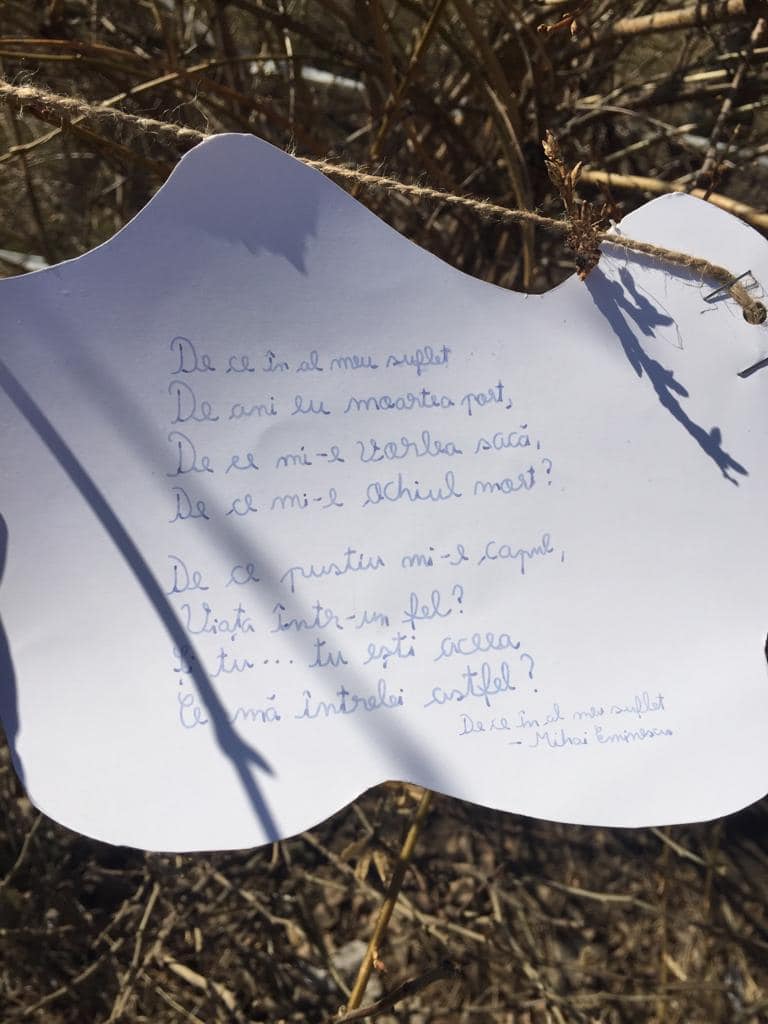 De ce în al meu suflet
De ani eu moartea port,
De ce mi-e vorbea sacă,
De ce mi-e ochiul mort?
De ce pustiu mi-e capul,
Viața într-un fel?
Și tu... tu ești aceea
Ce mă întrebi astfel?
De ce în al meu suflet
- Mihai Eminescu